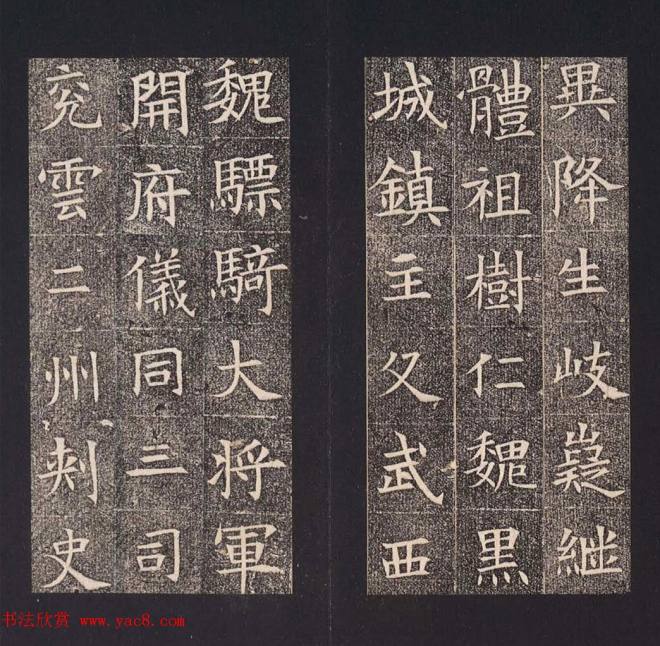 異降生岐嶷繼
體祖樹仁魏黑
城鎮主父武西
魏驃騎大將軍
開府儀同三司
兖雲二州刺史
书法欣赏 www.yac8.com